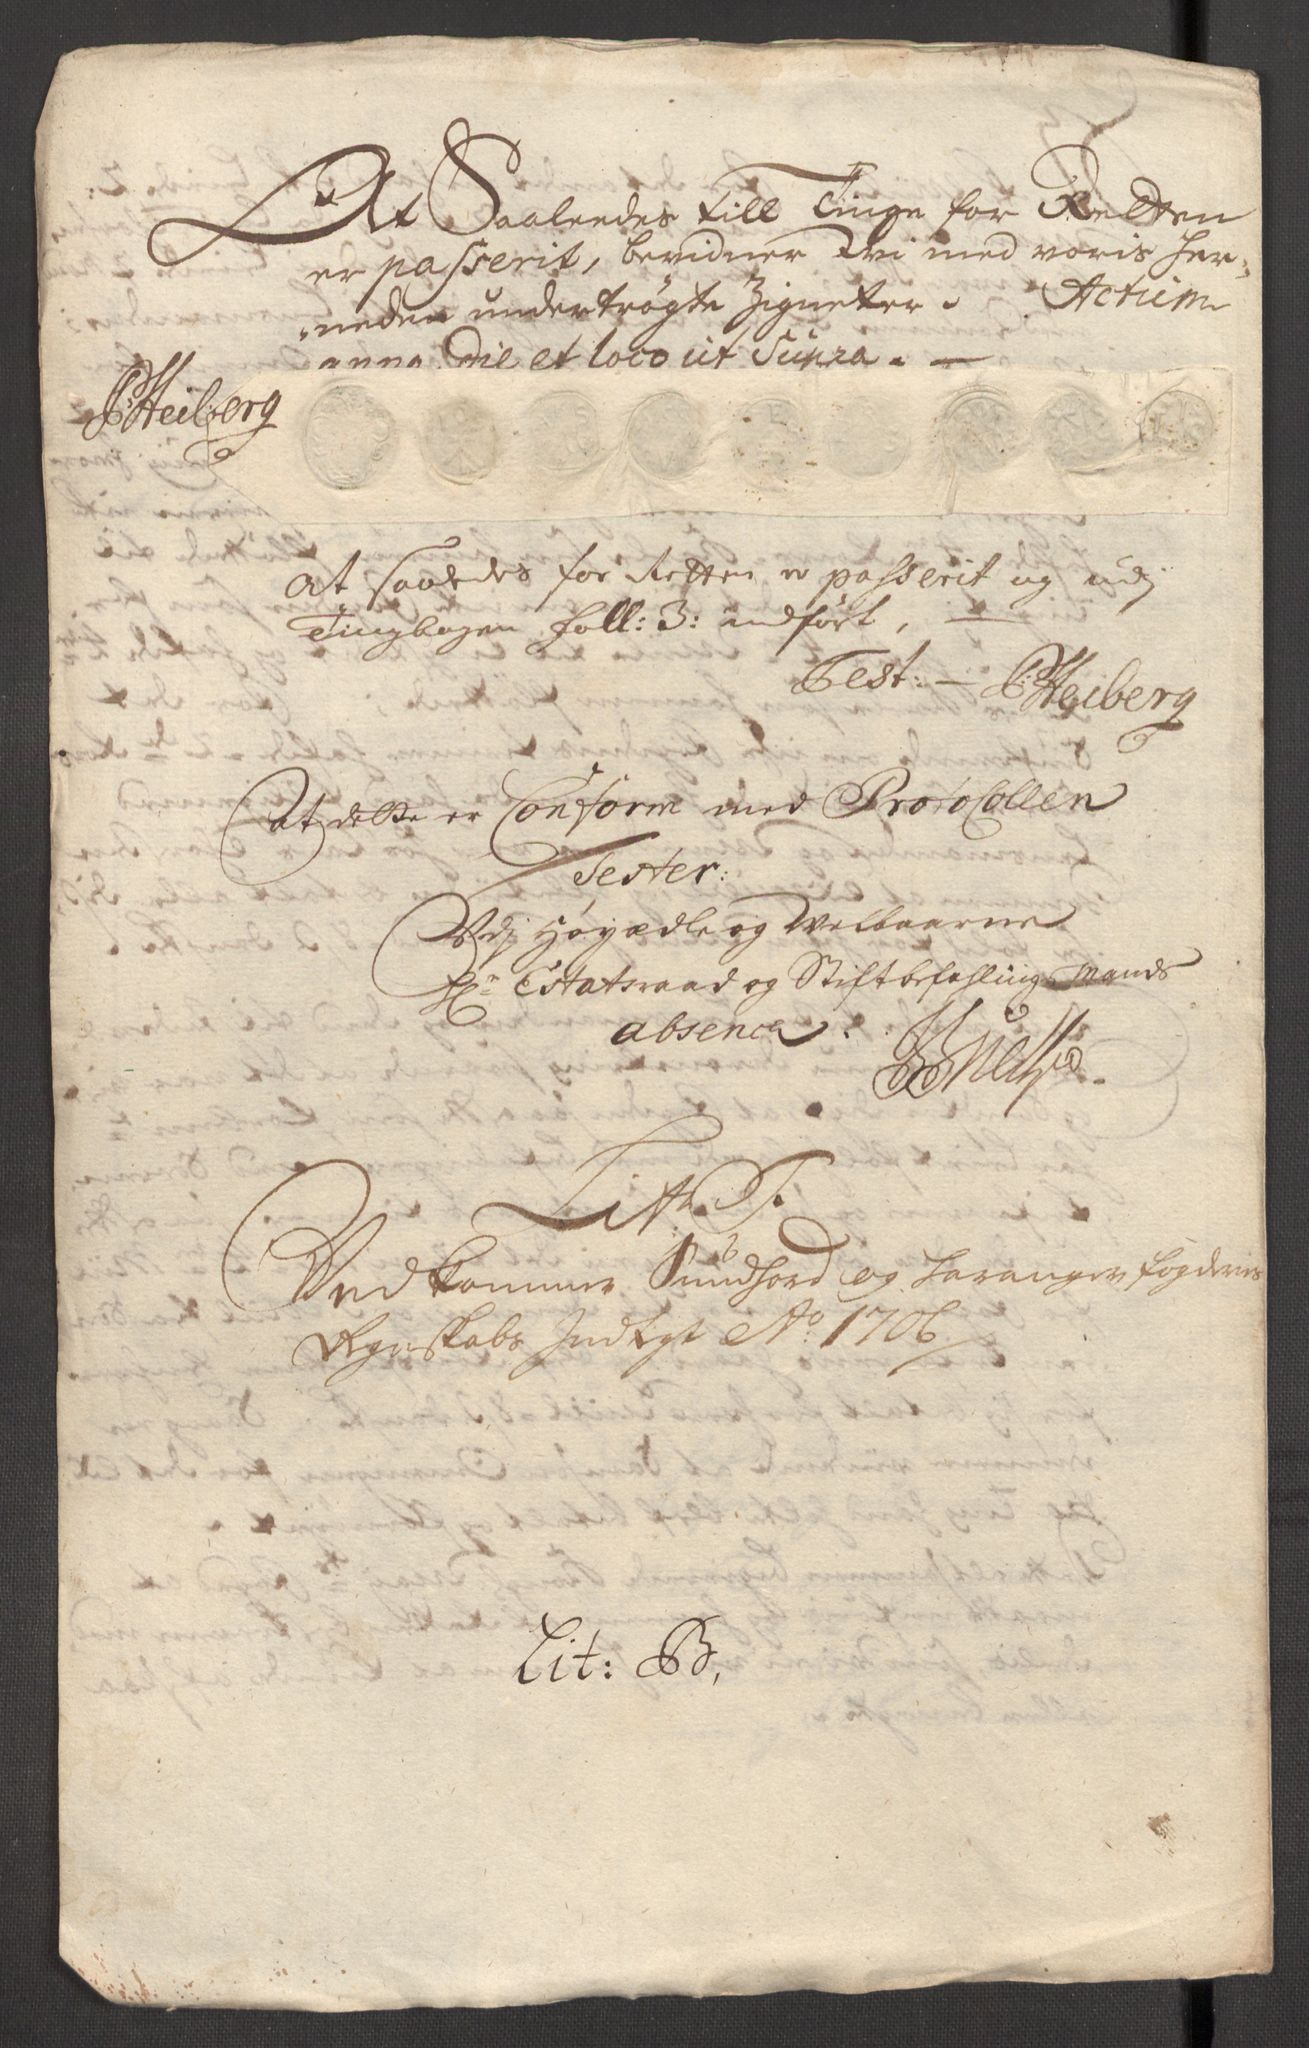 At Saaleedes till Tinge for Retten
er passerit, bevidner Wi med voris her-
neden undertrögte Zigneter. Actum
anno, Die et loco ut Supra.
P: Heiberg
At saaledes for Retten er passerit og udj
Tingbogen foll: 3: indfört,
Test: P: Heiberg
At dette er Conform med Protocollen
Tester:
Udj Höyædle og Welbaarne
Hr: Etatsraad og Stiftbefahlings Mands
absence
Litr. F.
Vedkommer Sundhord og Haranger fogderies
Regnskabs Indtegt Ao: 1706
Lit: B,